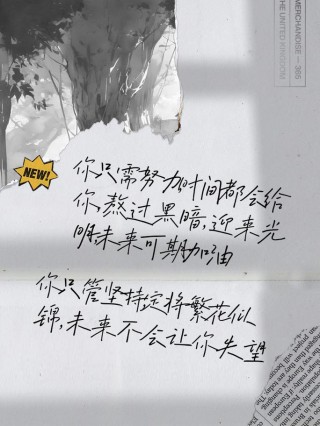 MERCHANDISE — 365
THE UNITED KINGDOM
NEW!
你只需努力时间都会给
你,熬过黑暗,迎来光
明未来可期加油
你只管坚持定将繁花似
锦,未来不会让你失望